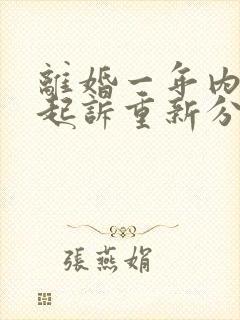 離婚一年内
起訴重新分
張燕娟